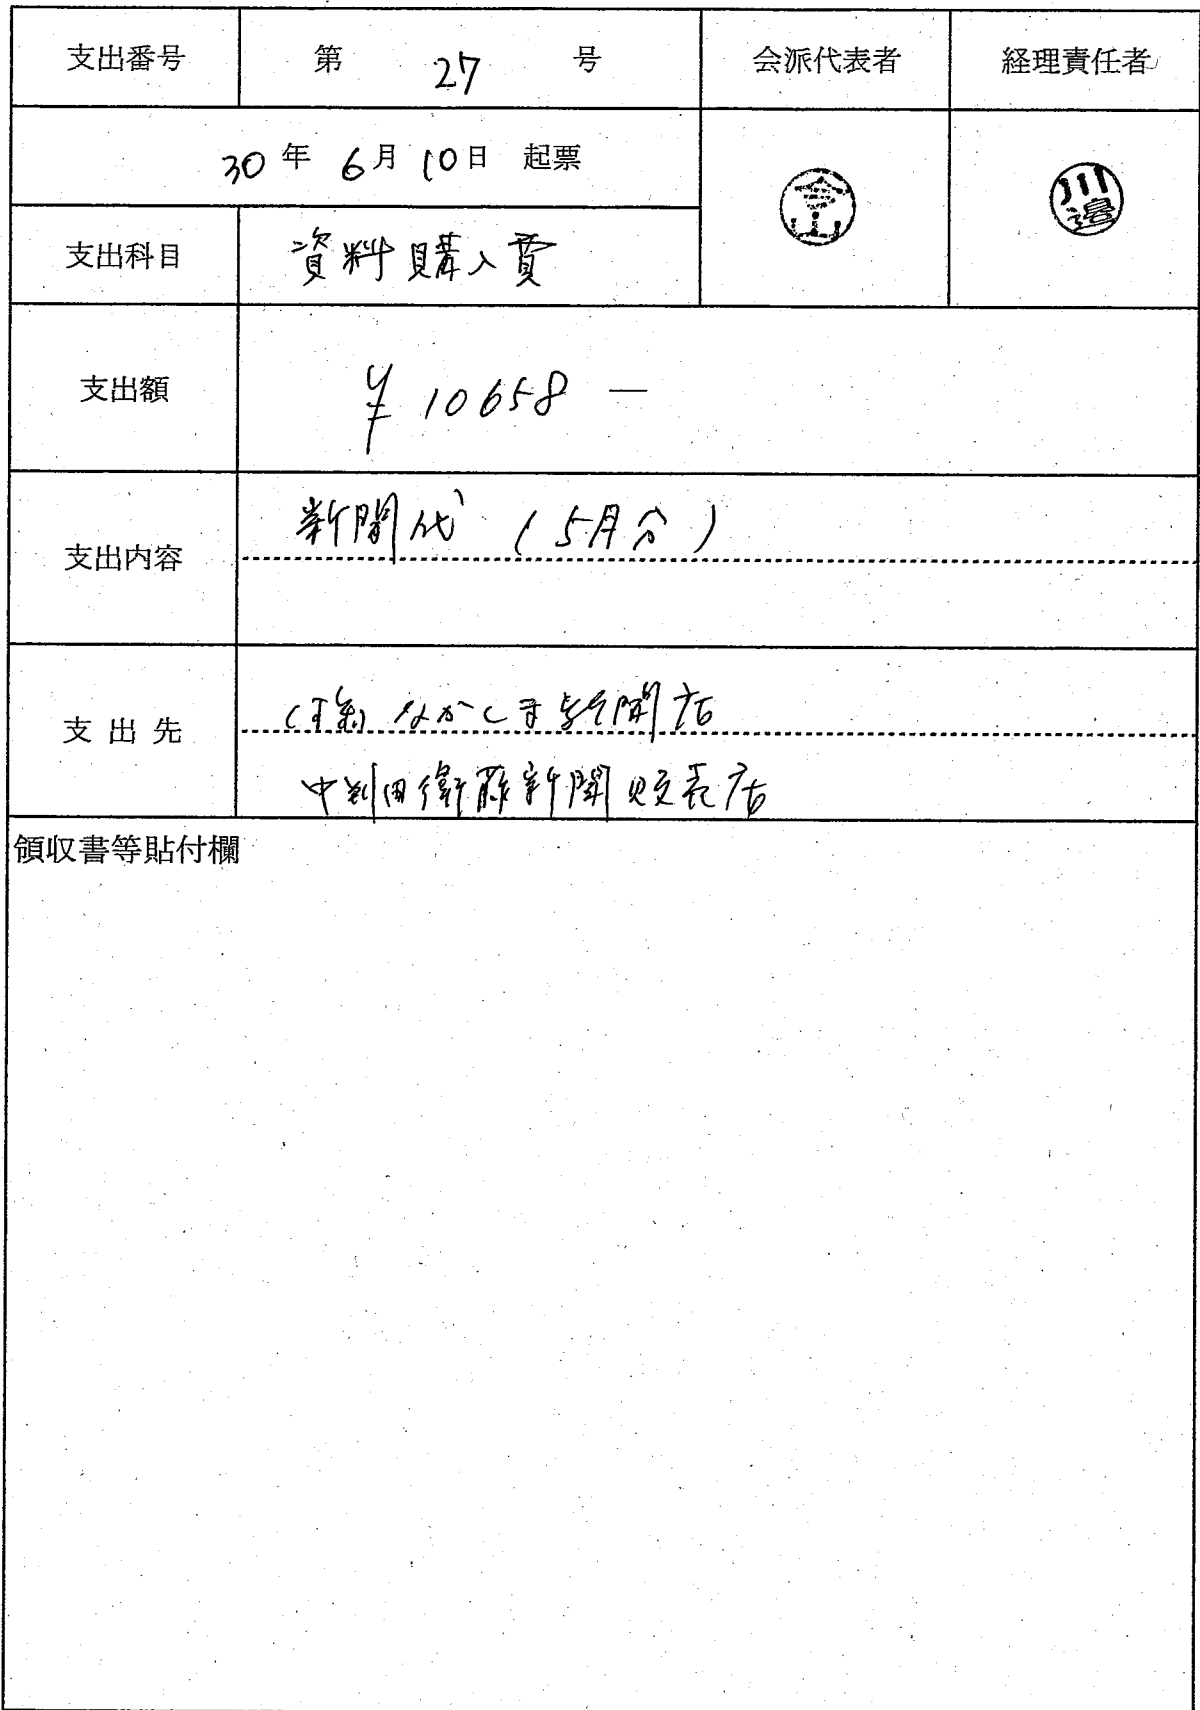 支出番号 第 27 号 会派代表者 経理責任者
30年 6月 10日 起票
川邉
支出科目 資料購入費
支出額 ¥10658―
支出内容 新聞代 (5月分)
支出先 (株)なかしま新聞店
中判田衛藤新聞販売店
領収書等貼付欄